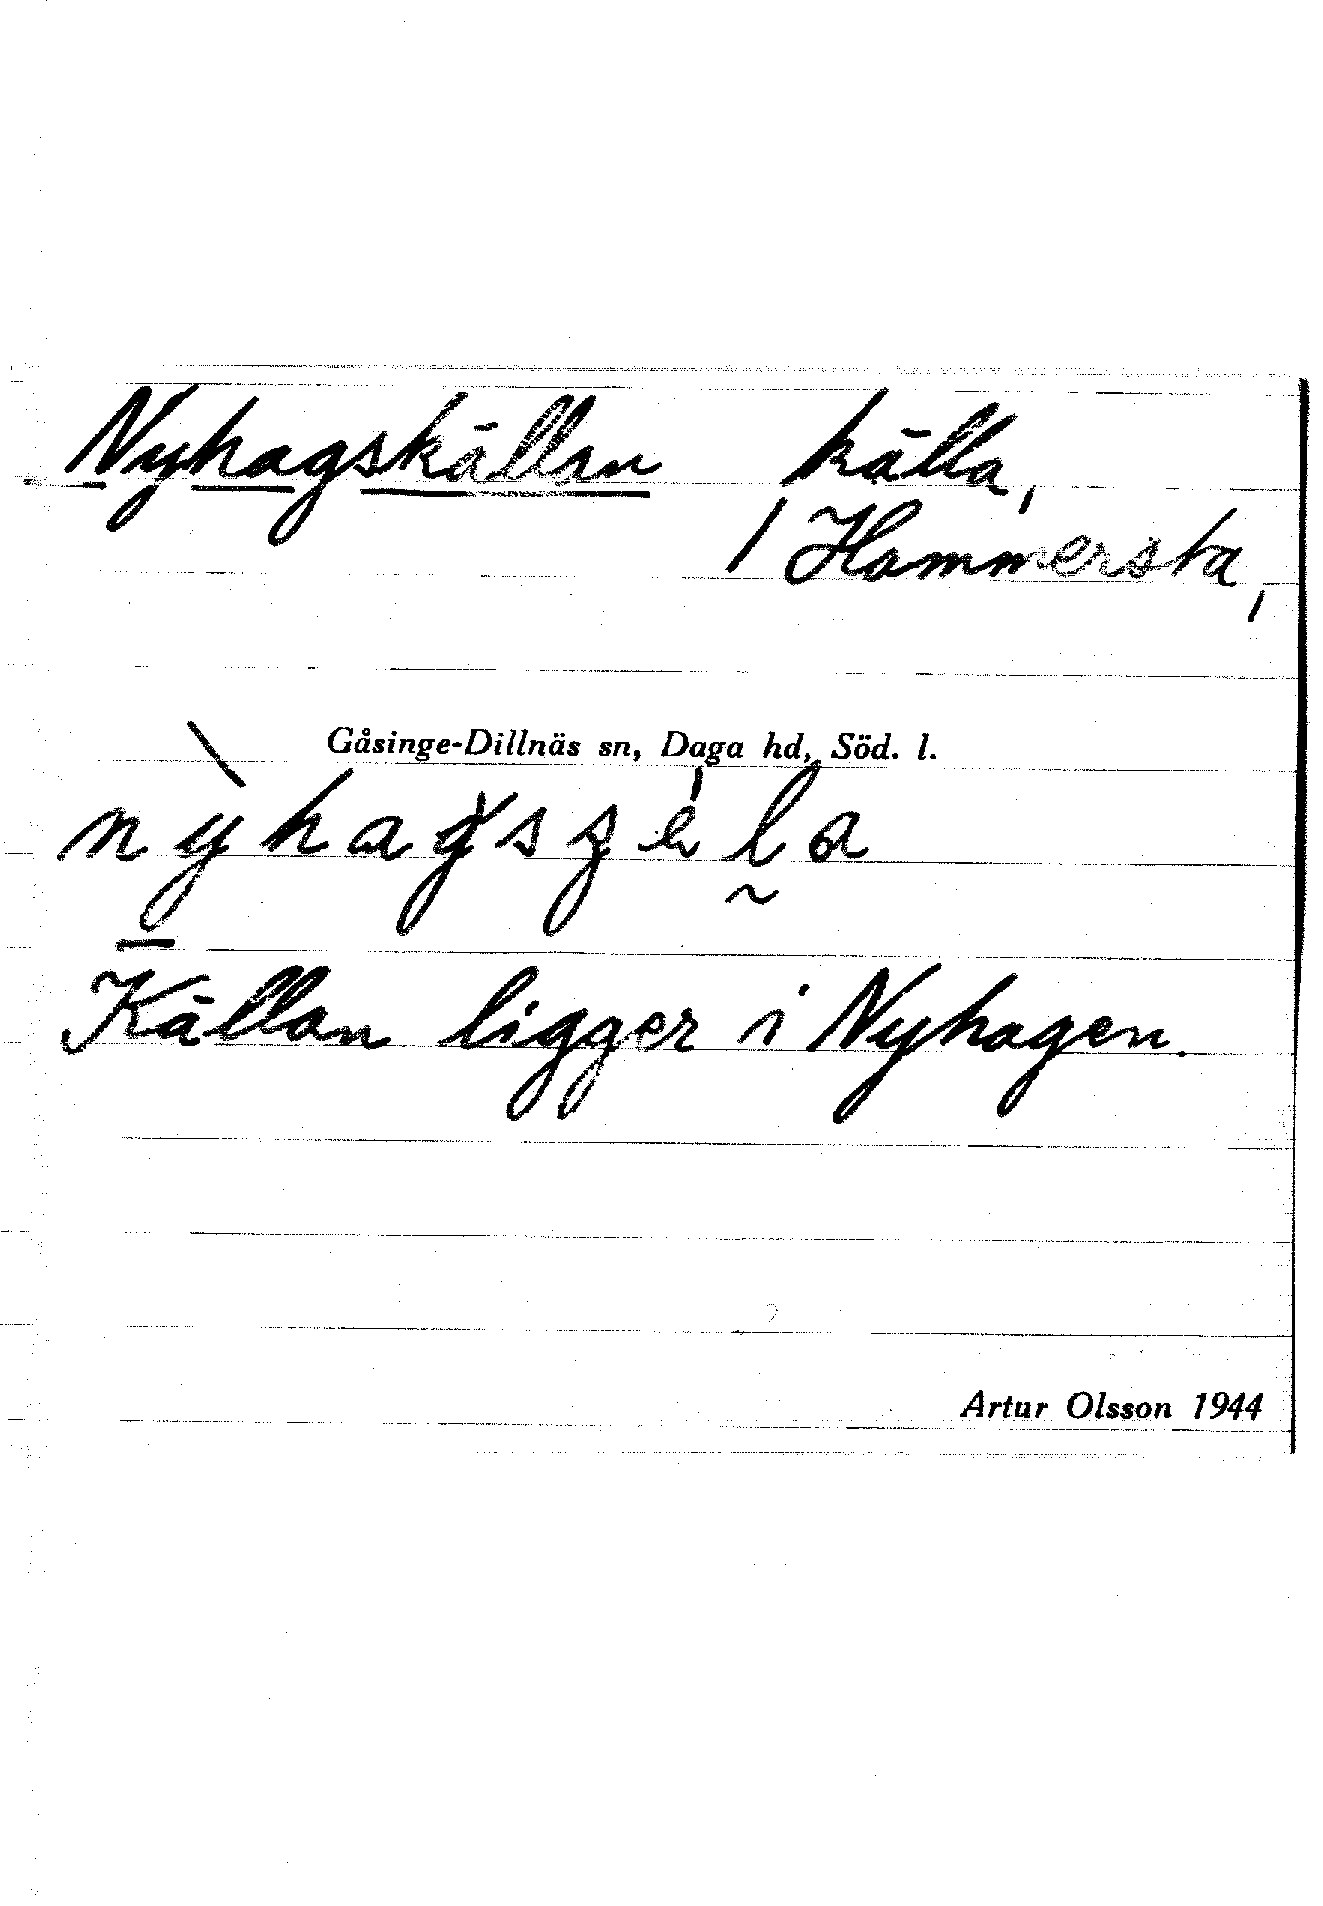 Nyhagskällan källa,
/ Hammersta,
Gåsinge-Dillnäs sn, Daga hd, Söd. l.
Källan ligger i Nyhagen.
Artur Olsson 1944